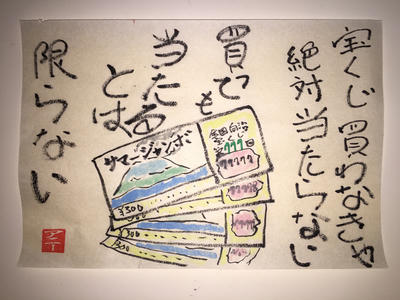 宝くじ買わなきゃ
絶対当たらない
買っても
当たる
とは
限らない
サマージャンボ
全国自治
宝くじ
第777回
77777
77777
¥300
¥300
¥300